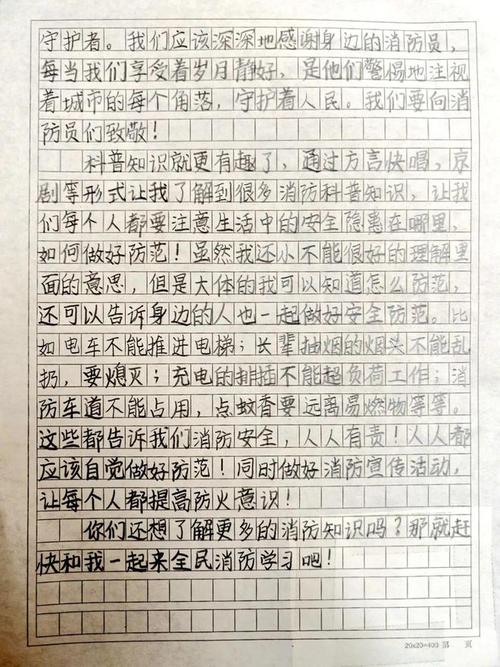 守护者。我们应该深深地感谢身边的消防员，
每当我们享受着岁月静好，是他们警惕地注视
着城市的每个角落，守护着人民。我们要向消
防员们致敬！
科普知识就更有趣了，通过方言快唱，京
剧等形式让我了解到很多消防科普知识，让我
们每个人都要注意生活中的安全隐患在哪里，
如何做好防范！虽然我还小不能很好的理解里
面的意思，但是大体的我可以知道怎么防范，
还可以告诉身边的人也一起做好安全防范。比
如电车不能推进电梯；长辈抽烟的烟头不能乱
扔，要熄灭；充电的排插不能超负荷工作；消
防车道不能占用，点蚊香要远离易燃物等等。
这些都告诉我们消防安全，人人有责！人人都
应该自觉做好防范！同时做好消防宣传活动，
让每个人都提高防火意识！
你们还想了解更多的消防知识吗？那就赶
快和我一起来全民消防学习吧！
20×20=400 第 页